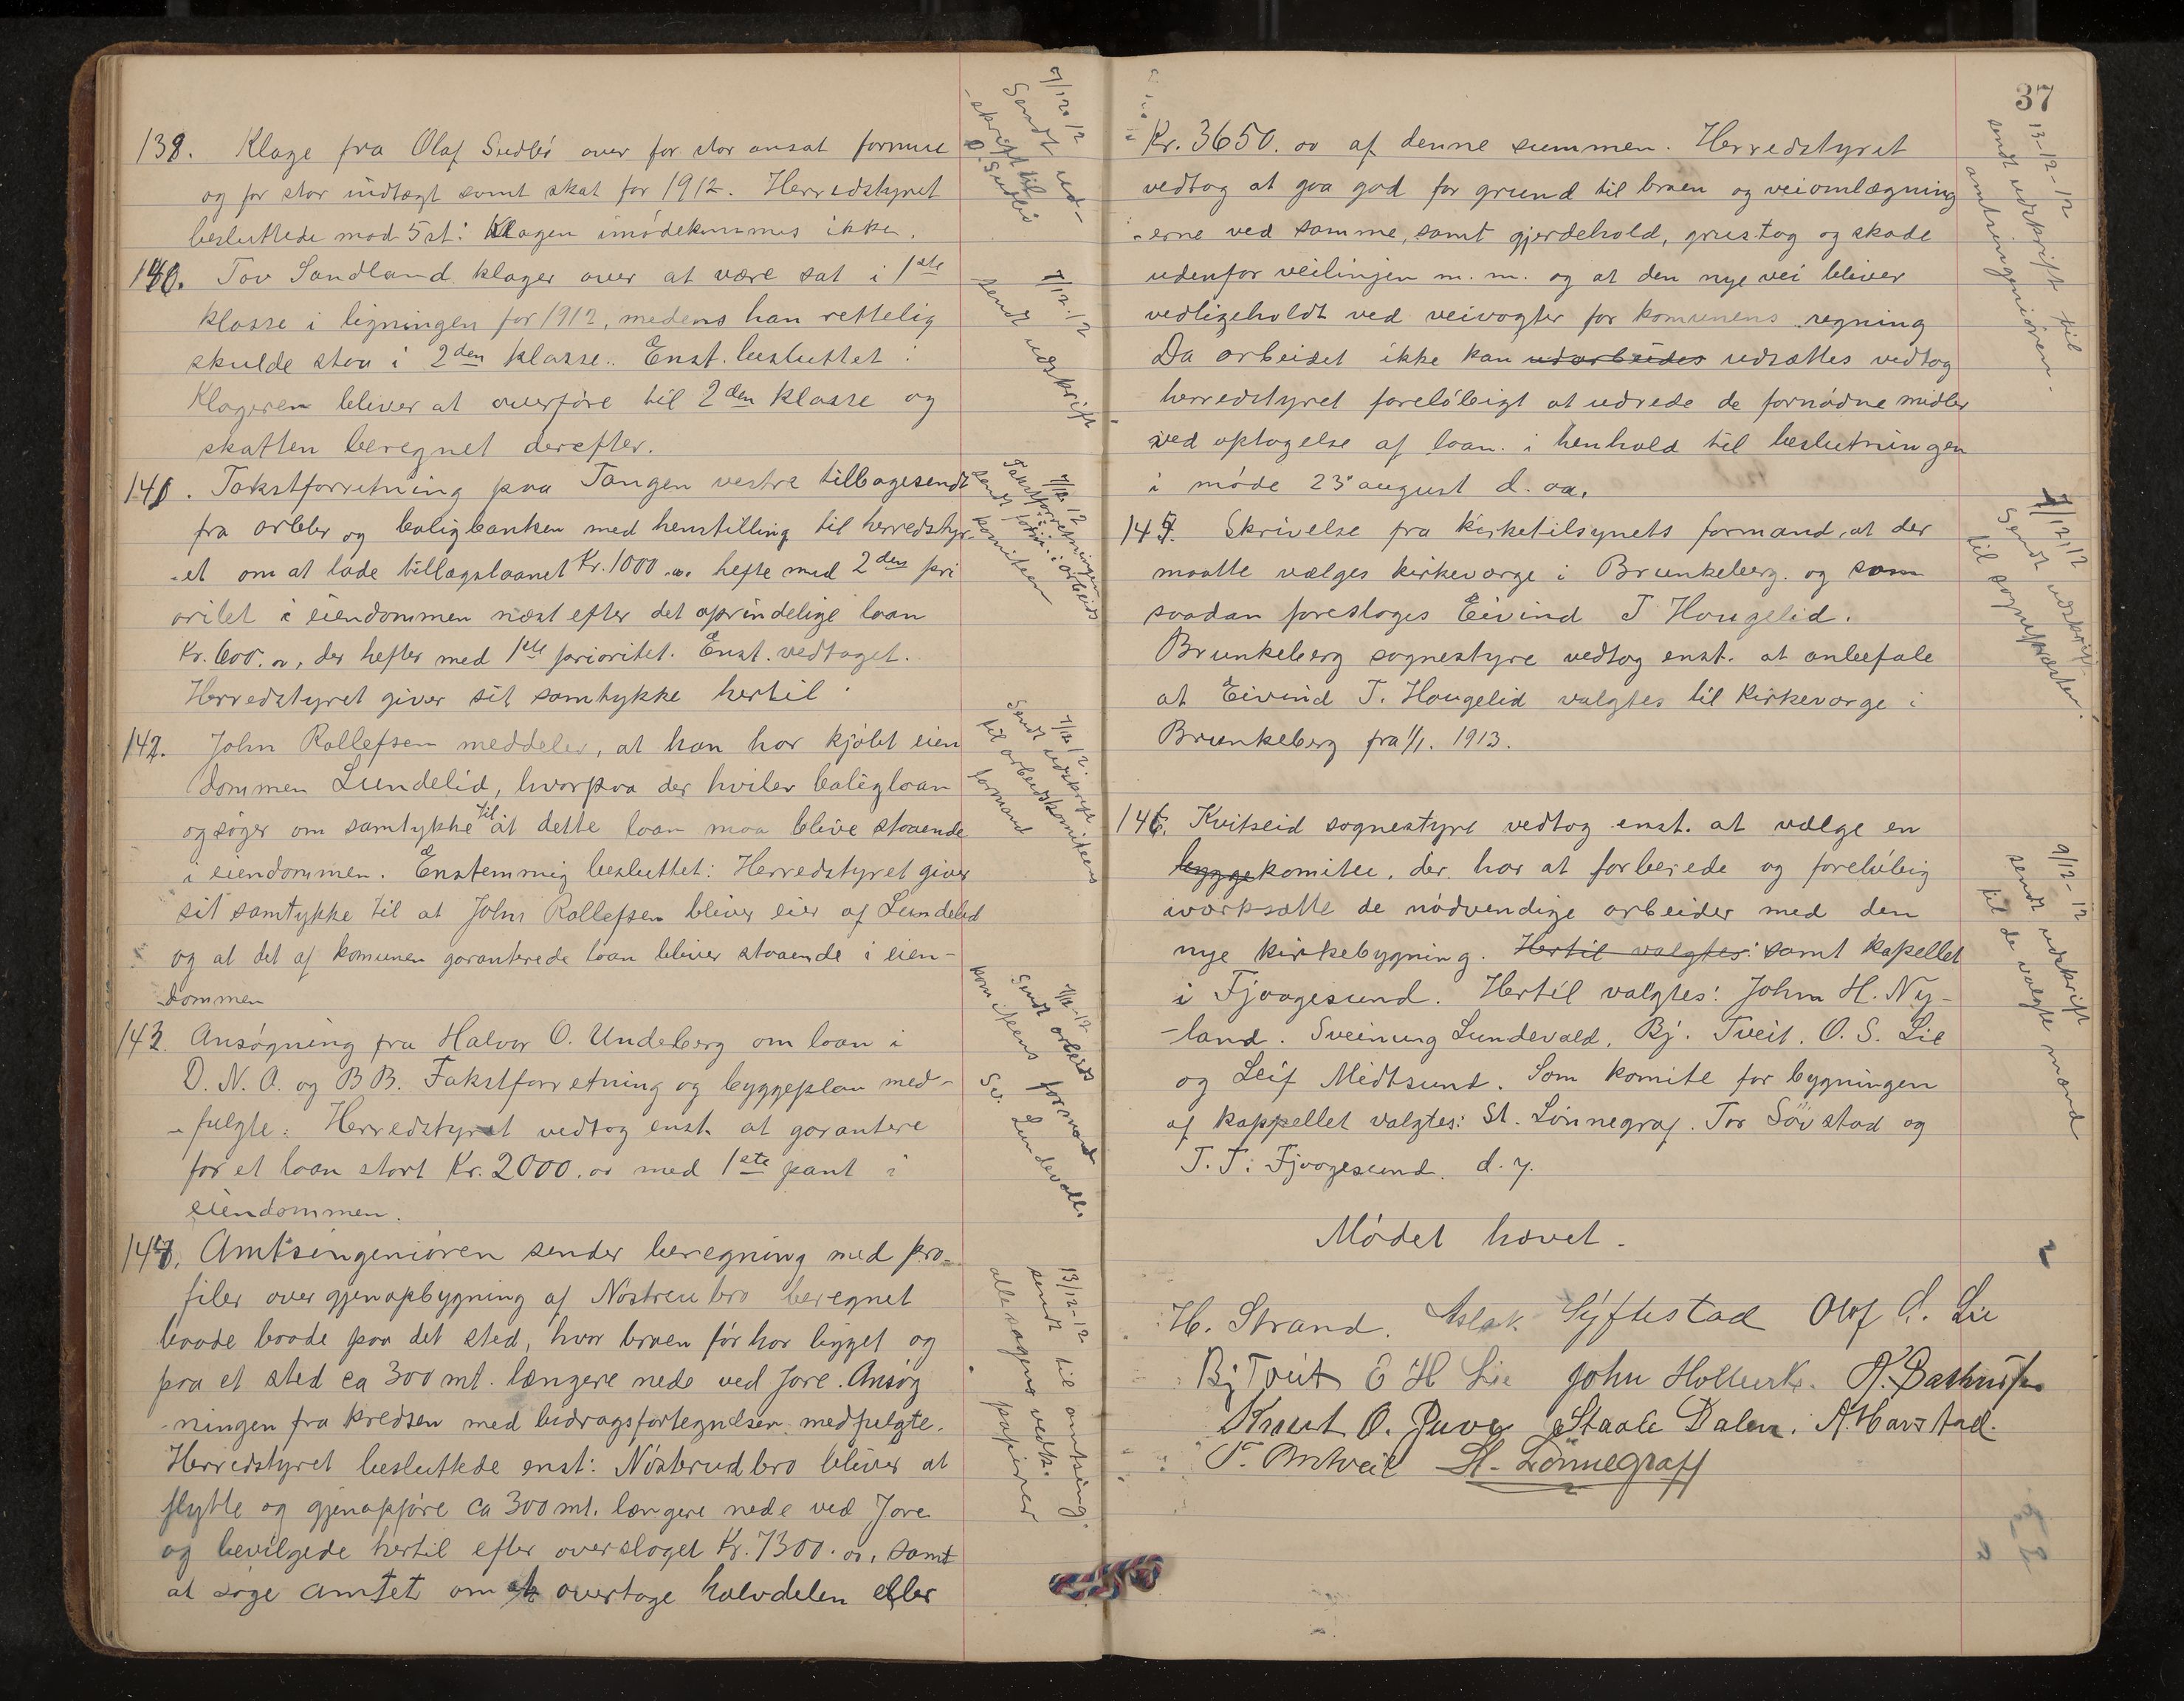 138. Klage fra Olaf Sudbö over for stor ansat formue
og for stor indtægt samt skat for 1912. Herredstyret
besluttede mod 5 st: Klagen imødekommes ikke.
140. Tov Sandland klager over at være sat i 1ste
klasse i ligningen for 1912, medens han rettelig
skulde staa i 2den klasse. Enst. besluttet:
Klageren bliver at overføre til 2den klasse og
skatten beregnet derefter.
141. Takstforretning paa Tangen vestre tilbagesendt
fra arbbr og boligbanken med henstilling til herredstyr-
-et om at lade tillægslaanet Kr. 1000.00 hefte med 2den pri
oritet i eiendommen næst efter det oprindelige laan
Kr. 600.00, der hefter med 1ste prioritet. Enst. vedtaget.
Herredstyret giver sit samtykke hertil.
142. John Rollefsen meddeler, at han har kjøbt eien
dommen Lundelid, hvorpaa der hviler boliglaan
og søger om samtykke til at dette laan maa blive staaende
i eiendommen. Enstemmig besluttet: Herredstyret giver
sit samtykke til at John Rollefsen bliver eier af Lundelid
og at det af komunen garanterede laan bliver staaende i eien-
dommen
143. Ansøgning fra Halvor O. Undeberg om laan i
D. N. A. og B B. Takstforretning og byggeplan med-
-fulgte: Herredstyret vedtog enst. at garantere
for et laan stort Kr. 2000.00 med 1ste pant i
eiendommen.
144. Amtsingeniøren sender beregning med pro-
filer over gjenopbygning af Nøstreu bro beregnet
baade baade paa det sted, hvor broen før har ligget og
paa et sted ca 300 mt. længere nede ved Jore. Ansøg
-ningen fra kredsen med bidragsfortegnelsen medfulgte.
Herredstyret besluttede enst: Nøstrud bro bliver at
flytte og gjenopføre ca 300 mt. længere nede ved Jore
og bevilgede hertil efter overslaget Kr. 7300.00, samt
at søge amtet om at overtage halvdelen eller
7/12 12
Sendt ud-
-skrift til
O. Sudbö
7/12.12
sendt udskrift
7/12 12
Takstforretningen
sendt form. i arbeids
komiteen
7/12 12.
Sendt udskrift
til arbeidskomiteens
formand
7/12-12
Sendt arbeids
komiteens formand
Sv. Lundevall
13/12-12
sendt til amtsing.
alle sagens vedk.
papirer
37
Kr. 3650.00 af denne summen. Herredstyret
vedtog at gaa god for grund til broen og veiomlægning
-erne ved samme, samt gjerdehold, grustag og skade
udenfor veilinjen m. m. og at den nye vei bliver
vedligeholdt ved veivogter for komunens regning
Da arbeidet ikke kan udarbeides udsættes vedtog
herredstyret foreløbigt at udrede de fornødne midler
ved optagelse af laan i henhold til beslutningen
i møde 23' august d. aa.
145. Skrivelse fra kirketilsynets formand, at der
maatte vælges kirkeværge i Brunkeberg og som
saadan foreslages Eivind T Haugelid.
Brunkeberg sognestyre vedtog enst. at anbefale
at Eivind T. Haugelid valgtes til Kirkeværge i
Brunkeberg fra 1/1. 1913.
146. Kvitseid sognestyre vedtog enst. at vælge en
byggekomitee, der har at forberede og foreløbig
iværksætte de nødvendige arbeider med den
nye kirkebygning. Hertil valgtes: samt kapellet
i Fjaagesund. Hertil valgtes: John H. Ny-
-land. Sveinung Lundevald, Bj. Tveit. O. S. Lie
og Leif Midtsund. Som komite for bygningen
af kappellet valgtes: St. Lønnegraf. Tor Søvstad og
T. T. Fjaagesund. d. y.
Mødet hævet.
H. Strand. Aslak Syftestad Olof S. Lie
Bj Tveit E H Lie John Holtveit.
Knut O. Juve Staale Dalen. A. Havstad.
St. Lönnegraff
13-12-12
sendt udskrift til
amtsingeniören.
7/12,12
Sendt udskrift
til sognepræsten.
9/12-12
sendt udskrift
til de valgte mænd